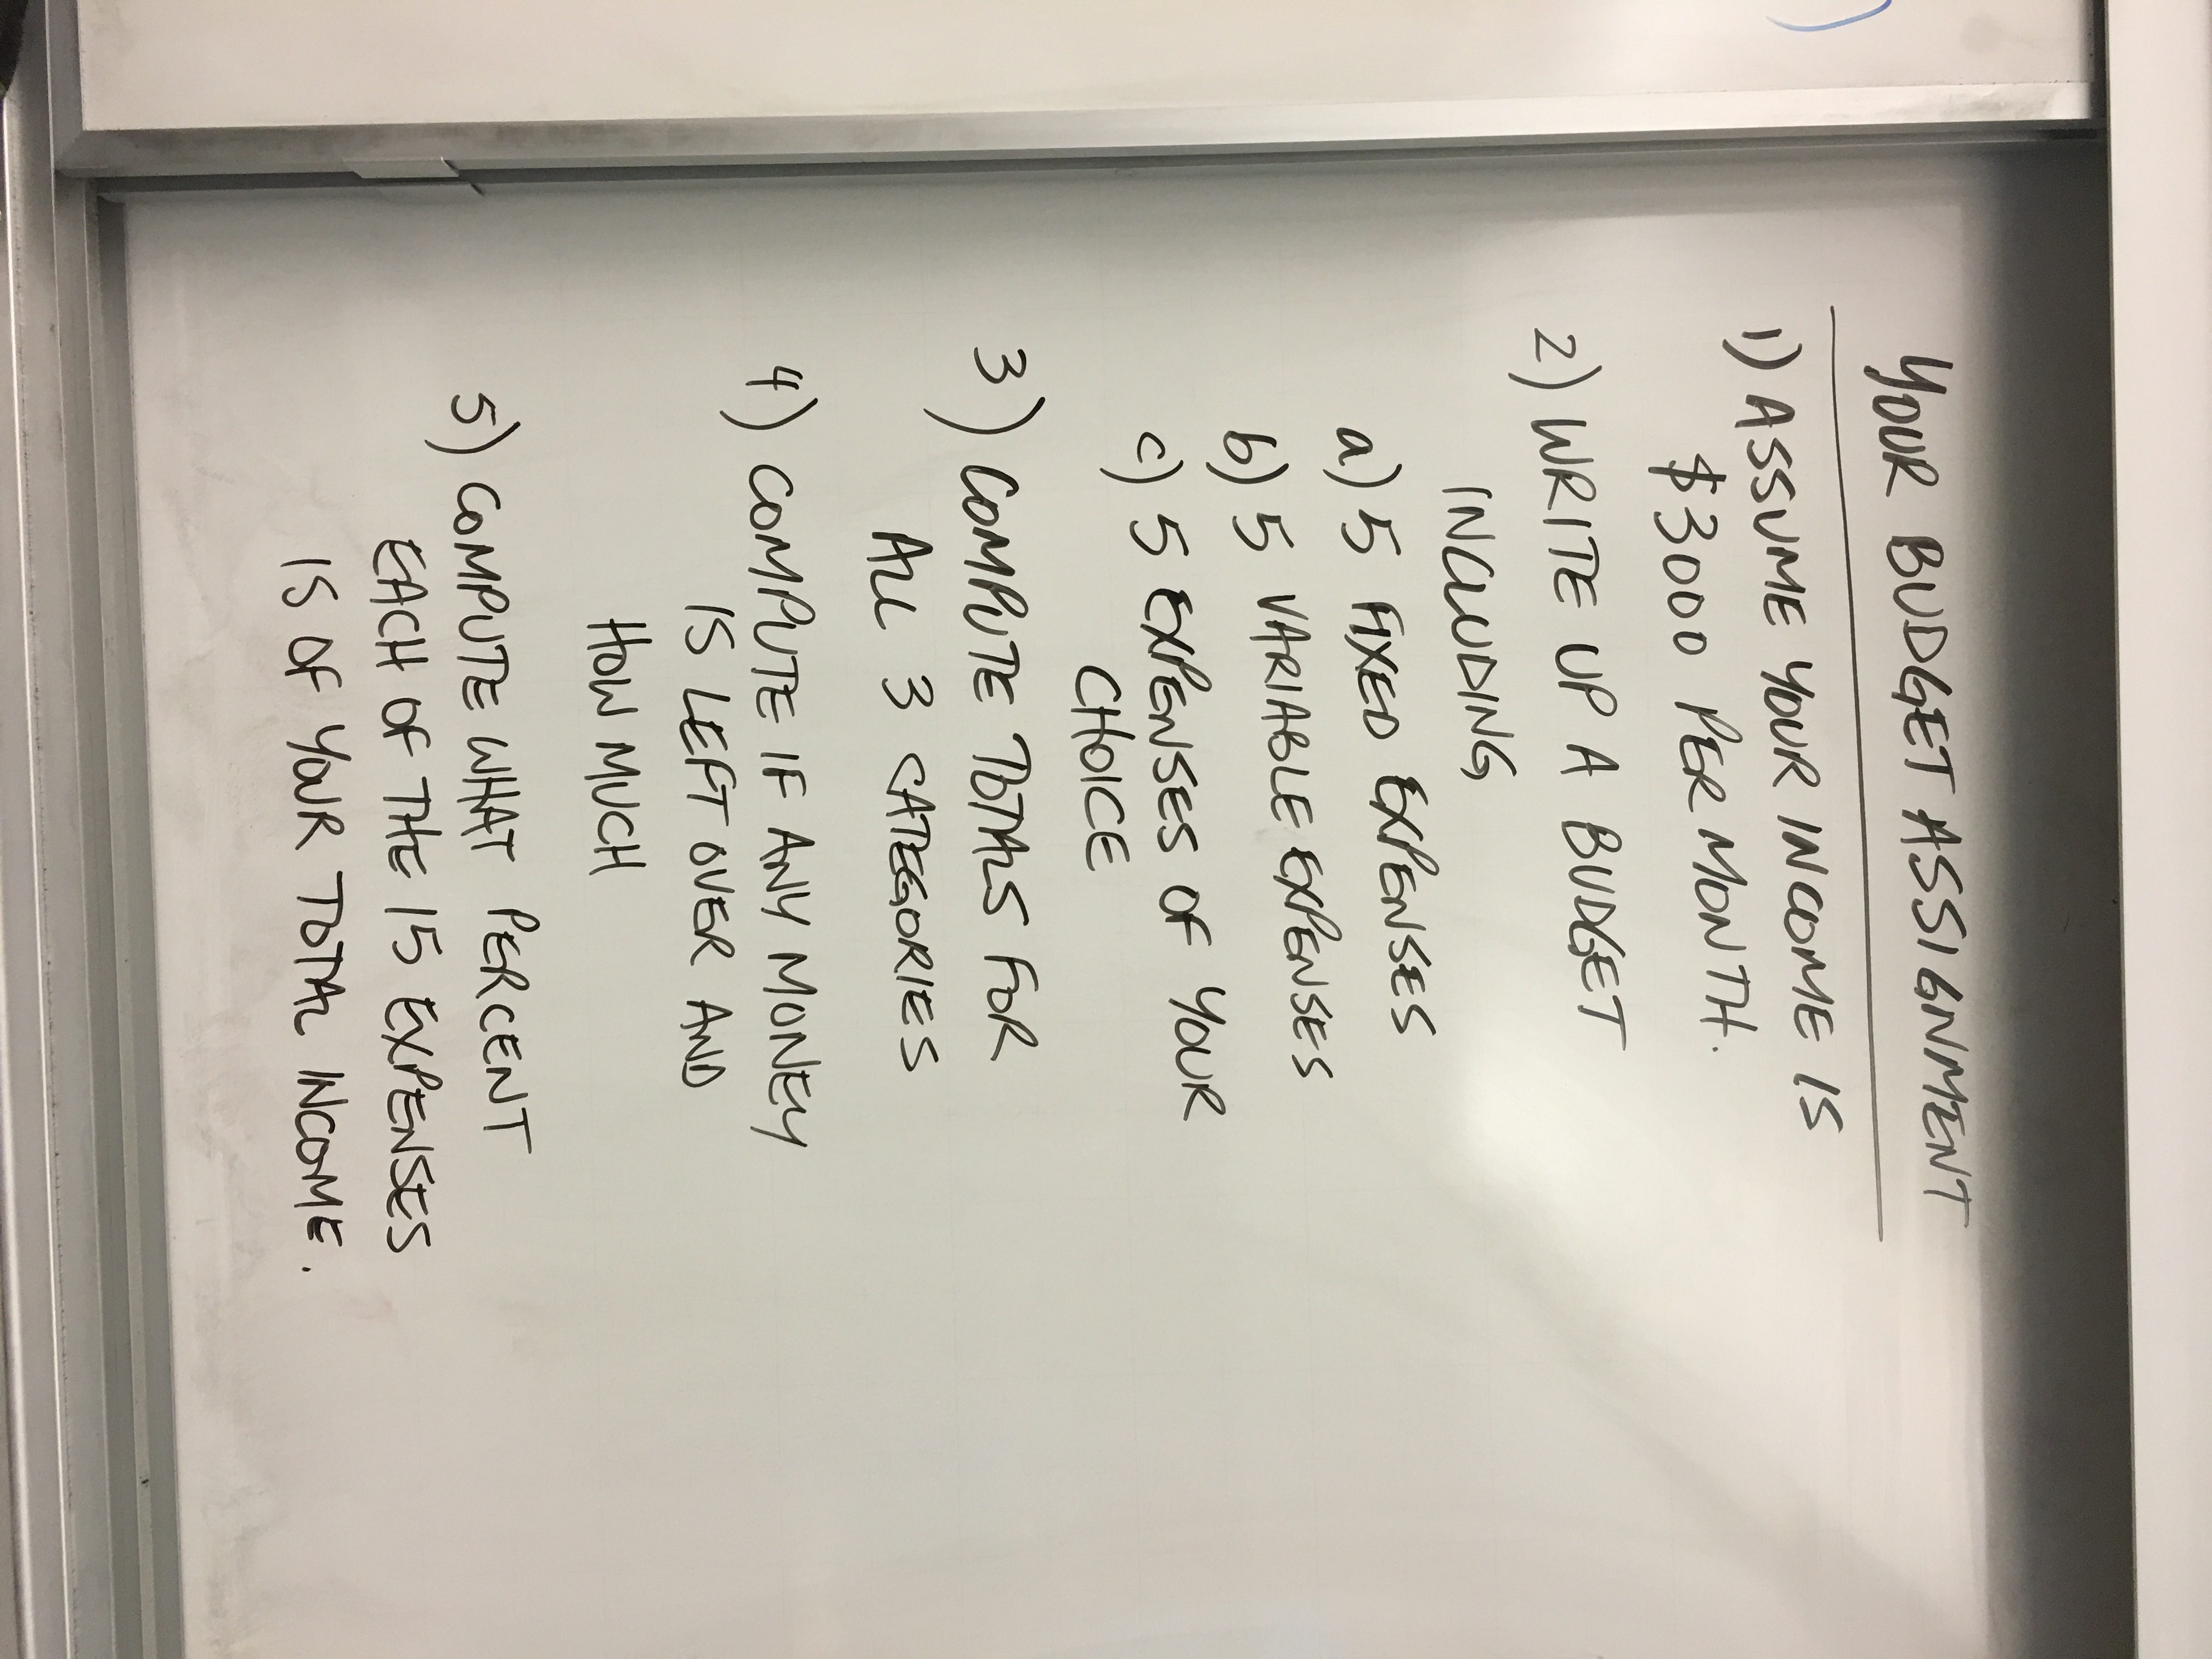 YOUR BUDGET ASSIGNMENT
1) ASSUME YOUR INCOME IS
$3000 PER MONTH.
2) WRITE UP A BUDGET
INCLUDING
a) 5 FIXED EXPENSES
b) 5 VARIABLE EXPENSES
c) 5 EXPENSES OF YOUR
CHOICE
3) COMPUTE TOTALS FOR
ALL 3 CATEGORIES
4) COMPUTE IF ANY MONEY
IS LEFT OVER AND
HOW MUCH
5) COMPUTE WHAT PERCENT
EACH OF THE 15 EXPENSES
IS OF YOUR TOTAL INCOME.